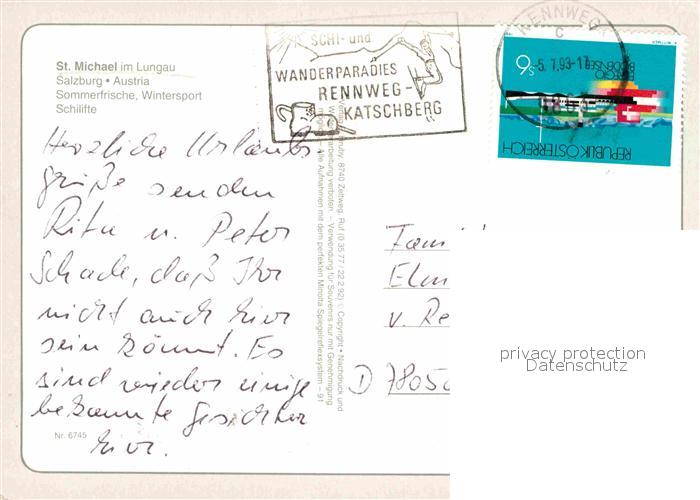 St. Michael im Lungau
Salzburg • Austria
Sommerfrische, Wintersport
Schilifte
SCHI- und
WANDERPARADIES
RENNWEG-
KATSCHBERG
RENNWEG
c
-5. 7. 93-17
S 6
REPUBLIK ÖSTERREICH
Herzliche Urlaubs-
grüße senden
Rita u. Peter
Schade, daß Ihr
nicht auch hier
sein könnt. Es
sind wieder einige
bekannte Gesichter
hier.
8740 Zeltweg, Ruf (0 35 77 / 22 2 92) © Copyright • Nachdruck und
verboten. – Verwendung für Souvenirs nur mit Genehmigung
– Alle Aufnahmen mit dem perfekten Minolta Spiegelreflexsystem – 91
Fam
Elm
v. Re
D 7805
privacy protection
Datenschutz
Nr. 6745